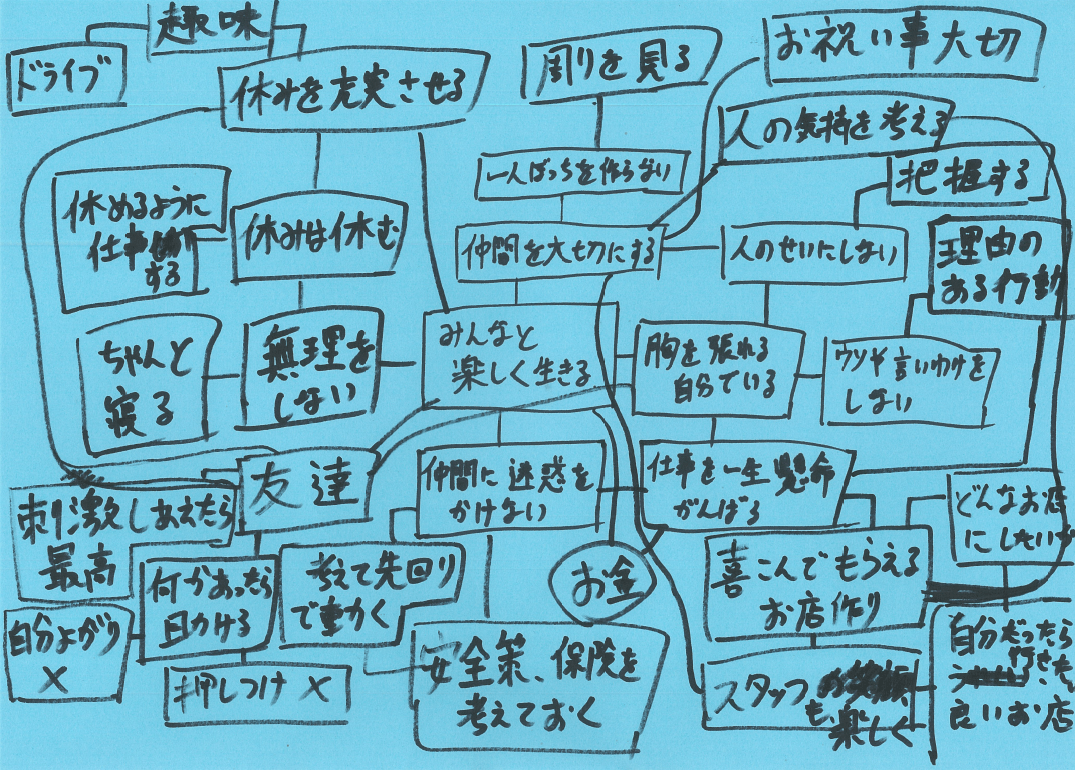 趣味
ドライブ
休みを充実させる
周りを見る
お祝い事大切
人の気持を考える
把握する
一人ぼっちを作らない
休めるように
仕事
する
休みは休む
仲間を大切にする
人のせいにしない
理由の
ある行動
ちゃんと
寝る
無理を
しない
みんなと
楽しく生きる
胸を張れる
自分でいる
ウソや言いわけを
しない
友達
仲間に迷惑を
かけない
仕事を一生懸命
がんばる
どんなお店
にしたいか
刺激しあえたら
最高
何かあったら
目かける
考えて先回り
で動かく
お金
喜こんでもらえる
お店作り
自分よがり
×
押しつけ ×
安全策、保険を
考えておく
スタッフ
も楽しく
自分だったら
行きたい
良いお店